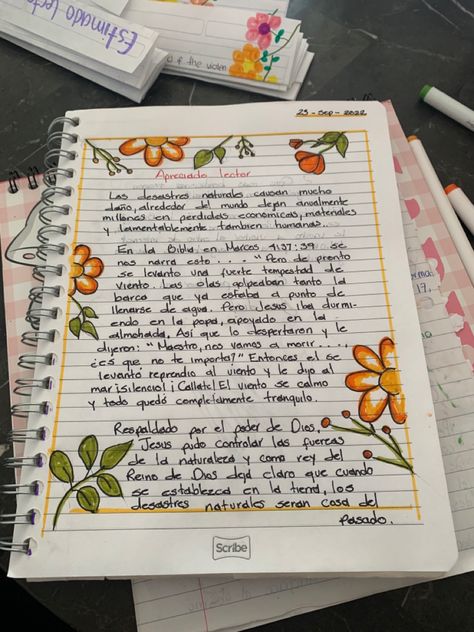 Estimado lecto
d of the violen
23 - Sep - 2022
Apreciado lector
Los desastres naturales causan mucho
daño, alrededor del mundo dejan anualmente
millones en perdidas economicas, materiales
y lamentablemente tambien humanas.
En la Biblia en Marcos 4:37:39 se
nos narra esto - "Pero de pronto
se levanto una fuerte tempestad de
viento. Las olas golpeaban tanto la
barca que ya estaba a punto de
llenarse de agua. Pero Jesus iba durmi-
endo en la popa, apoyado en la
almohada, Asi que lo despertaron y le
dijeron: "Maestro, nos vamos a morir....,
¿es que no te importa?" Entonces el se
levantó reprendio al viento y le dijo al
mar ¡silencio! ¡Callate! El viento se calmo
y todo quedó completamente tranquilo.
Respaldado por el poder de Dios,
Jesus pudo controlar las fuerzas
de la naturaleza y como rey del
Reino de Dios dejá claro que cuando
se establezca en la tierra, los
desastres naturales seran cosa del
pasado.
Scribe